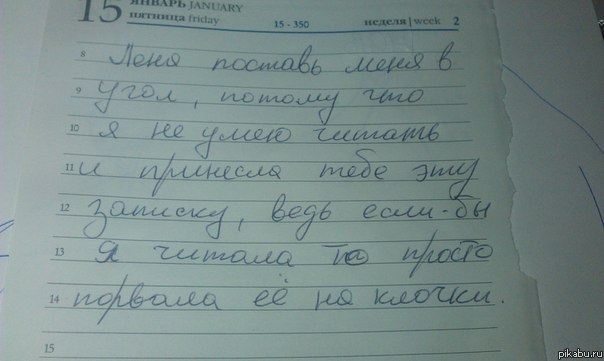 15 ЯНВАРЬ JANUARY
пятница friday 15 - 350 неделя | week 2
8 Леня поставь меня в
9 угол, потому что
10 я не умею читать
11 и принесла тебе эту
12 записку, ведь если-бы
13 я читала то просто
14 порвала её на клочки.
15
pikabu.ru